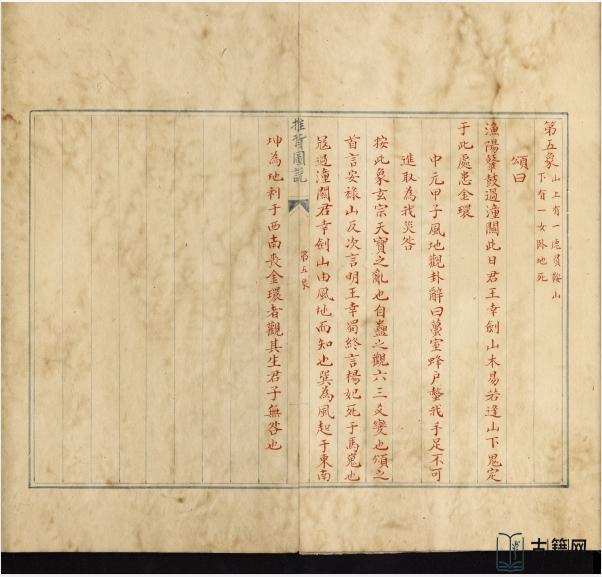 第五象 山上有一鹿質鞍山
下有一女卧地死
頌曰
漁陽鼙鼓過潼關此日君王幸劍山木易若逢山下鬼定
于此處患金環
中元甲子風地觀卦辭曰蠆室蜂戶螫我手足不可
進取為我災咎
按此象玄宗天寶之亂也自蠱之觀六三爻變也頌之
首言安祿山反次言明王幸蜀終言楊妃死于馬嵬也
推背圖說
第五象
寇過潼關君幸劍山由風地而知也巽為風起于東南
坤為地利于西南喪金環者觀其生君子無咎也
古籍网